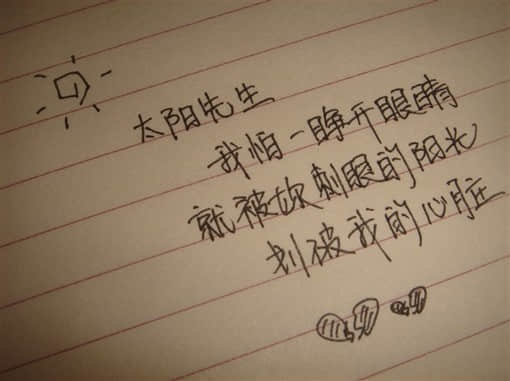 太阳先生
我怕一睁开眼睛
就被妳刺眼的阳光
划被我的心脏